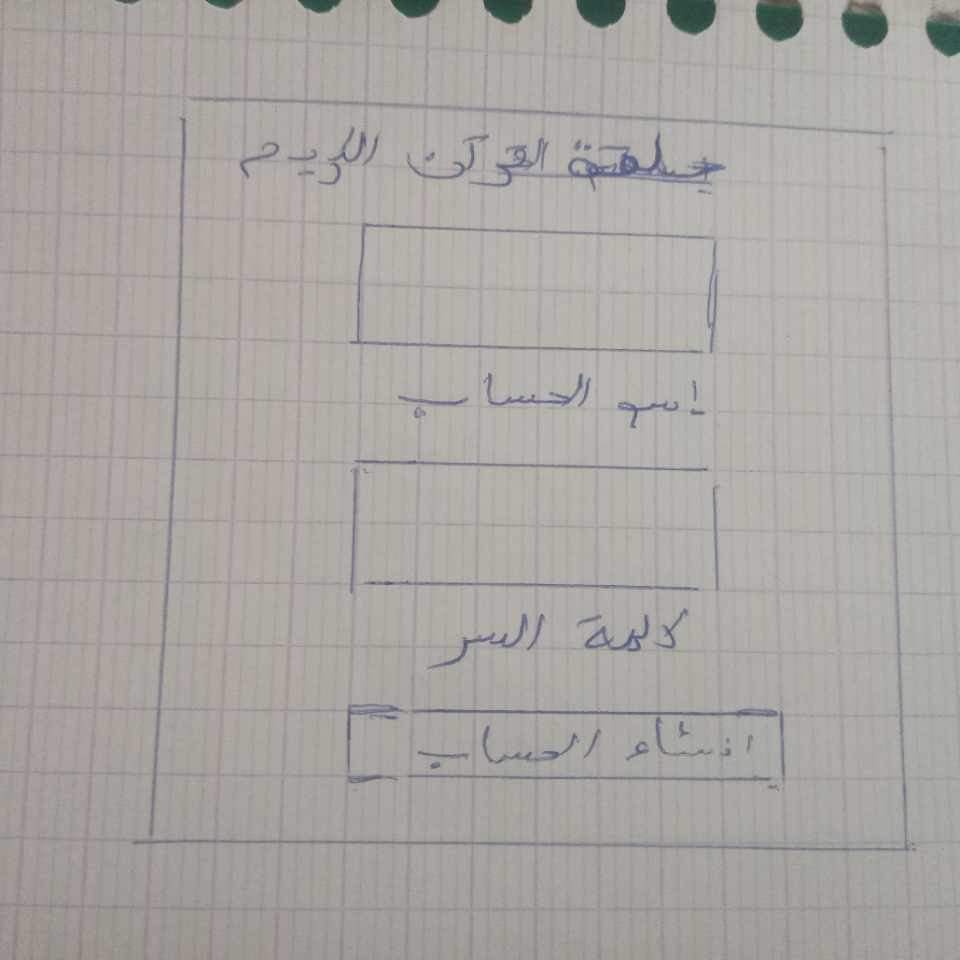 القرآن الكريم
اسم الحساب
كلمة السر
انشاء الحساب